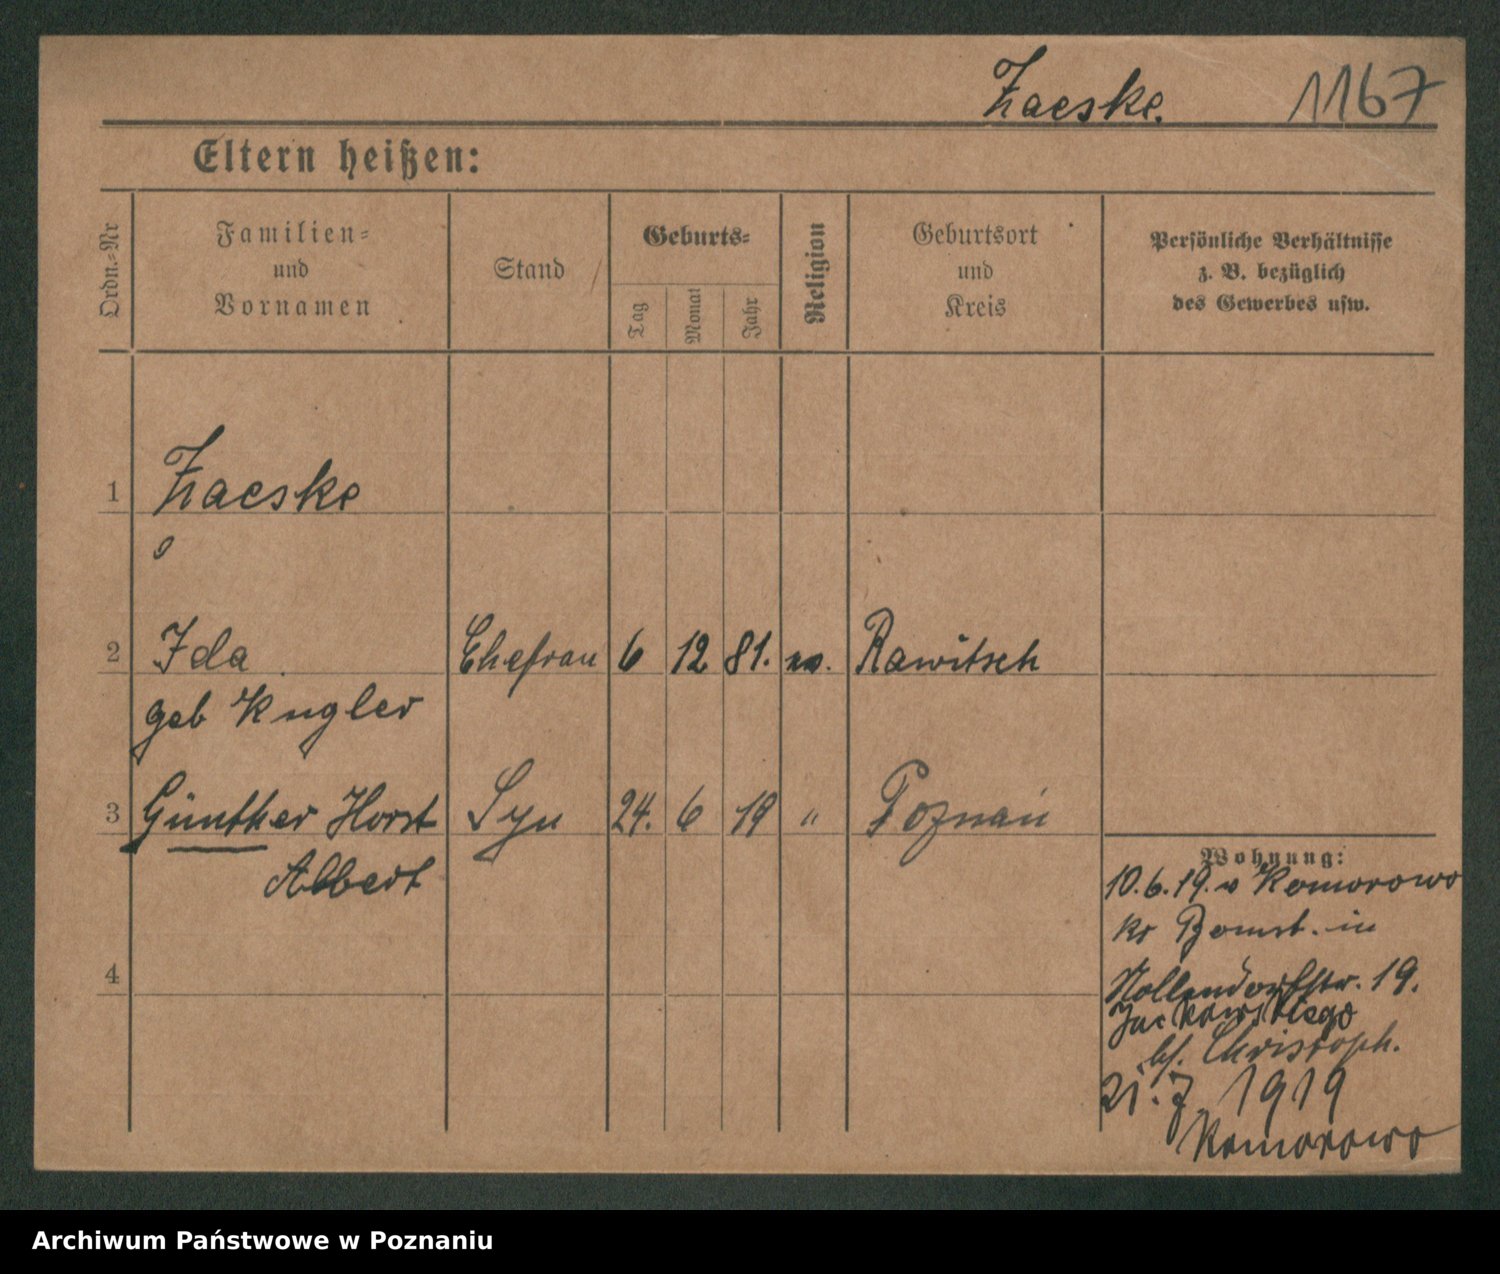 Zaeske. 1167
Eltern heißen:
Ordn.=Nr
Familien=
und
Vornamen
Stand
Geburts=
Tag
Monat
Jahr
Religion
Geburtsort
und
Kreis
Persönliche Verhältnisse
z. B. bezüglich
des Gewerbes usw.
1 Zaeske
2 Ida Ehefrau 6 12 81. Rawitsch
geb Kugler
3 Günther Horst Syn 24. 6 19 " Poznań
Albert
4
Wohnung:
10.6.19. v Komorowo
kr Bomst. in
Nollendorfstr. 19.
Jackowskiego
bf. Christoph.
21. 7 1919
Komorowo
Archiwum Państwowe w Poznaniu